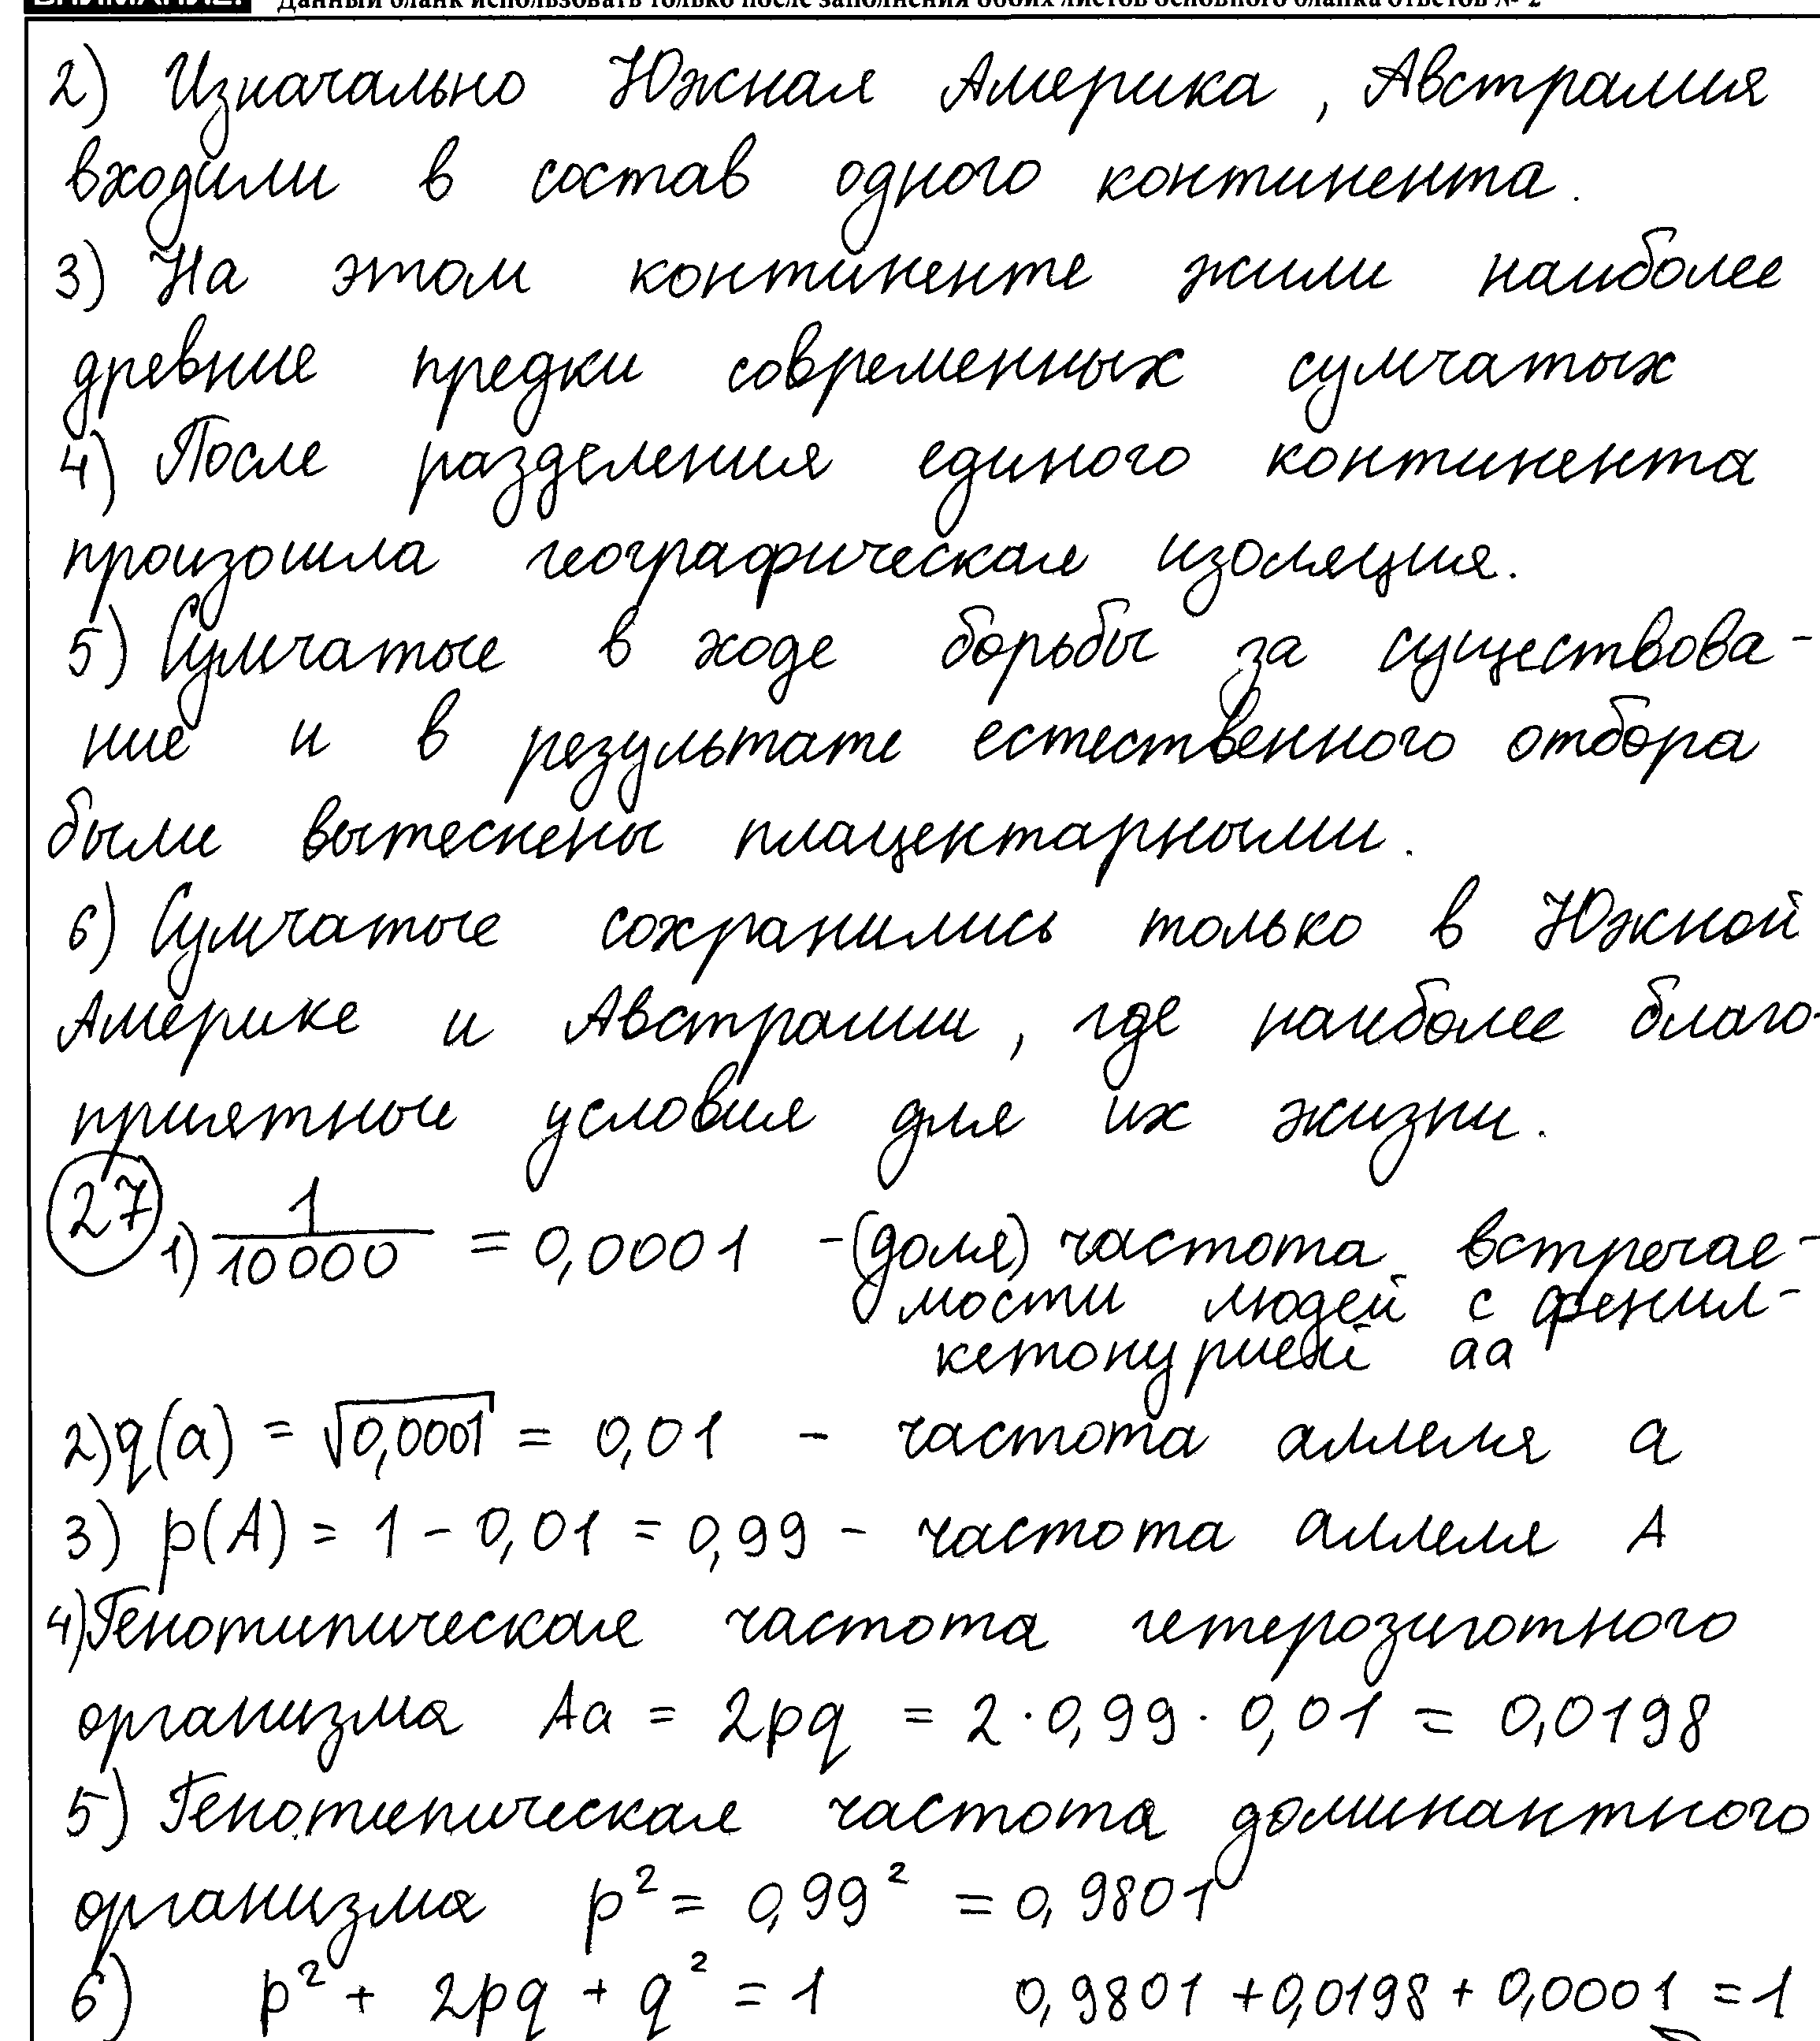 Данный бланк использовать только после заполнения обоих листов основного бланка ответов № 2
2) Изначально Южная Америка, Австралия
входили в состав одного континента.
3) На этом континенте жили наиболее
древние предки современных сумчатых
4) После разделения единого континента
произошла географическая изоляция.
5) Сумчатые в ходе борьбы за существова-
ние и в результате естественного отбора
были вытеснены плацентарными.
6) Сумчатые сохранились только в Южной
Америке и Австралии, где наиболее благо-
приятные условия для их жизни.
27 1) 1/10000 = 0,0001 - (доля) частота встречае-
мости людей с фенил-
кетонурией аа
2) q(a) = √0,0001 = 0,01 - частота аллеля а
3) p(A) = 1 - 0,01 = 0,99 - частота аллеля А
4) Генотипическая частота гетерозиготного
организма Аа = 2pq = 2·0,99·0,01 = 0,0198
5) Генотипическая частота доминантного
организма p² = 0,99² = 0,9801
6) p² + 2pq + q² = 1 0,9801 + 0,0198 + 0,0001 = 1